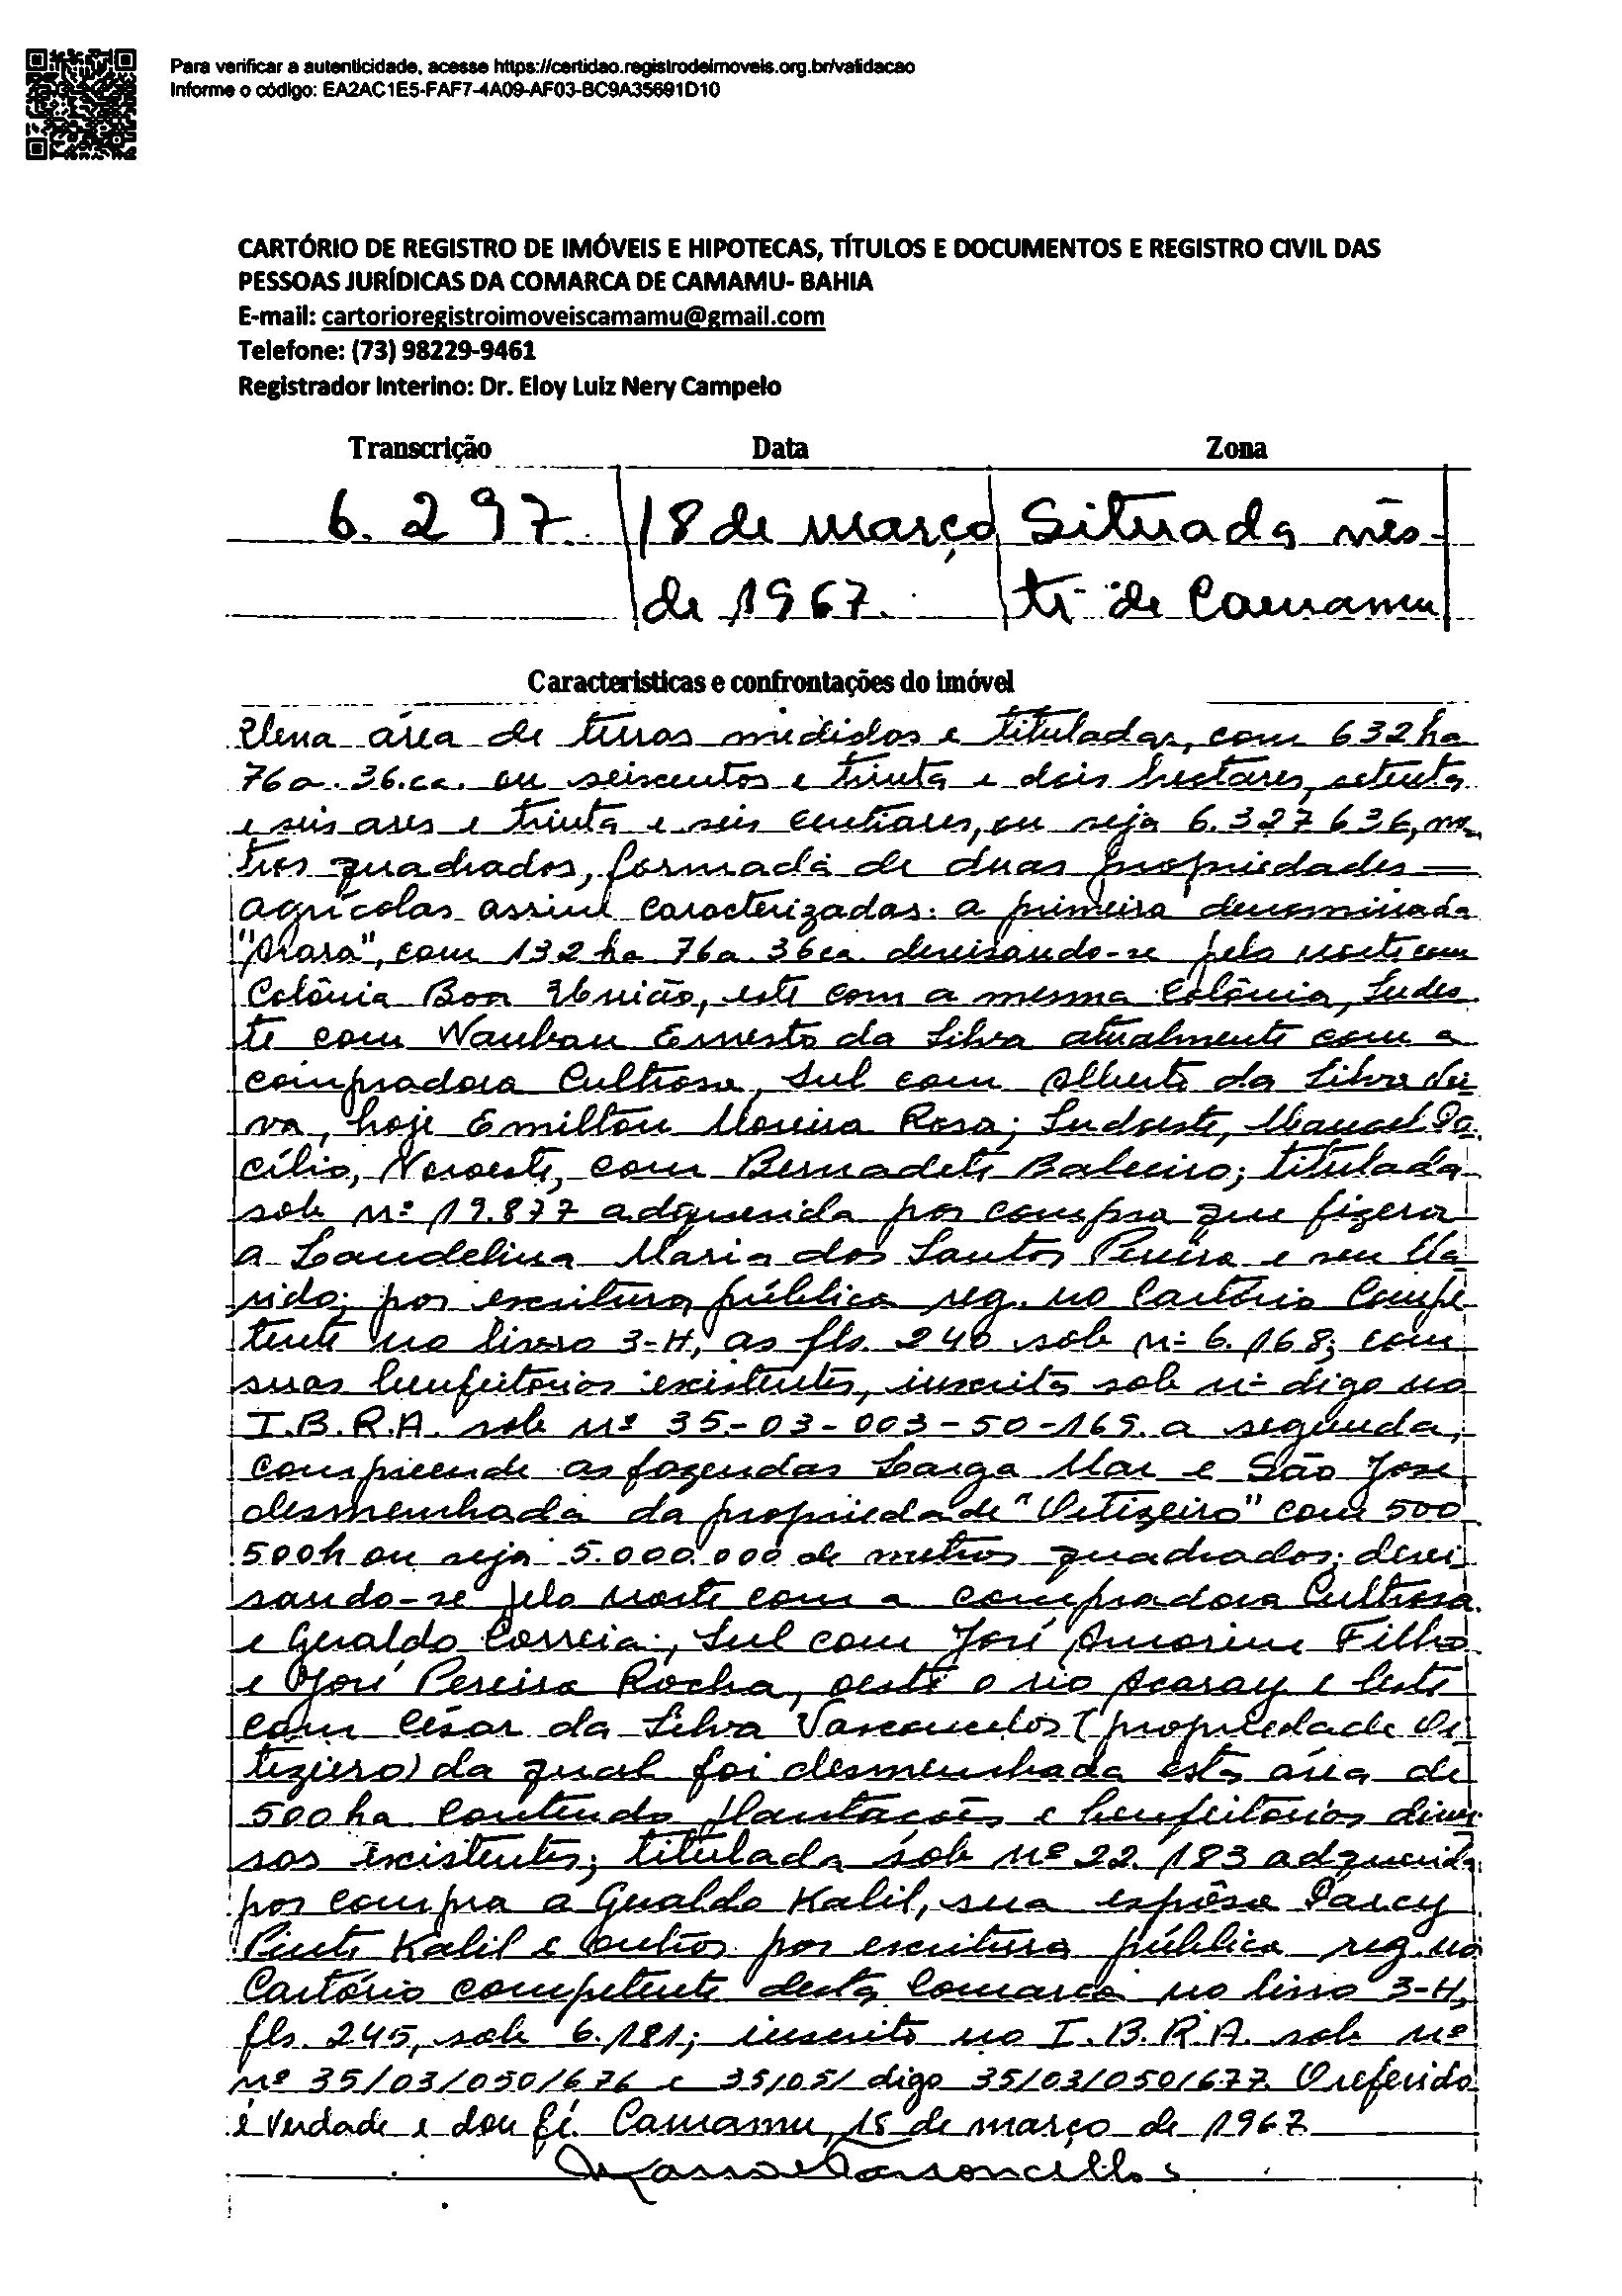 Para verificar a autenticidade, acesse https://certidao.registrodeimoveis.org.br/validacao
Informe o código: EA2AC1E5-FAF7-4A09-AF03-BC9A35691D10
CARTÓRIO DE REGISTRO DE IMÓVEIS E HIPOTECAS, TÍTULOS E DOCUMENTOS E REGISTRO CIVIL DAS
PESSOAS JURÍDICAS DA COMARCA DE CAMAMU- BAHIA
E-mail: cartorioregistroimoveiscamamu@gmail.com
Telefone: (73) 98229-9461
Registrador Interino: Dr. Eloy Luiz Nery Campelo
Transcrição Data Zona
6.297. 18 de março Situada nês-
de 1967. te de Camamu
Caracteristicas e confrontações do imóvel
Uma área de terras medidas e tituladas, com 632 ha
76a. 36.ca. ou seiscentos e trinta e dois hectares, setenta
e seis ares e trinta e seis centiares, ou seja 6.327636, me
tros quadrados, formada de duas propriedades —
agrícolas assim caracterizadas: a primeira denominada
"Arara", com 132 ha 76a. 36ca. devisando-se pelo norte com
Colônia Boa União, este com a mesma Colônia, Sudes
te com Wauban Ernesto da Silva atualmente com a
compradora Cultrosa, Sul com Alberto da Silva
va, hoje Emilton Moreira Rosa; Sudoeste, Manoel Pa
cílio, Noroeste, com Bernadete Baleeiro; titulada
sob nº 19.877 adquerida por compra que fizera
a Laudelina Maria dos Santos Pereira e seu Ma
rido; por escritura pública reg. no Cartório Compe
tente no livro 3-H, as fls. 240 sob nº 6.168; com
suas benfeitorias existentes, inscrita sob nº digo no
I.B.R.A. sob nº 35-03-003-50-165. a segunda,
compreende as fazendas Larga Mar e São José,
desmembrada da propriedade "Vetizeiro" com 500
500h ou seja 5.000.000 de metros quadrados; devi
sando-se pelo norte com a compradora Cultrosa
e Geraldo Correia; Sul com José Amorim Filho
e José Pereira Rocha, oeste o rio Acaray e leste
com César da Silva Vasconcelos (propriedade Ve
tizeiro) da qual foi desmembrada esta área de
500 ha contendo plantações e benfeitorias diver
sas existentes; titulada sob nº 22.183 adquerida
por compra a Geraldo Kalil, sua espôsa Darcy
Pinto Kalil e outros por escritura pública reg. no
Cartório competente desta Comarca no livro 3-H,
fls. 245, sob 6.181; inscrito no I.B.R.A. sob nº
nº 35/03/050/676 e 35/05/ digo 35/03/050/677. O referido
é verdade e dou fé. Camamu, 18 de março de 1967